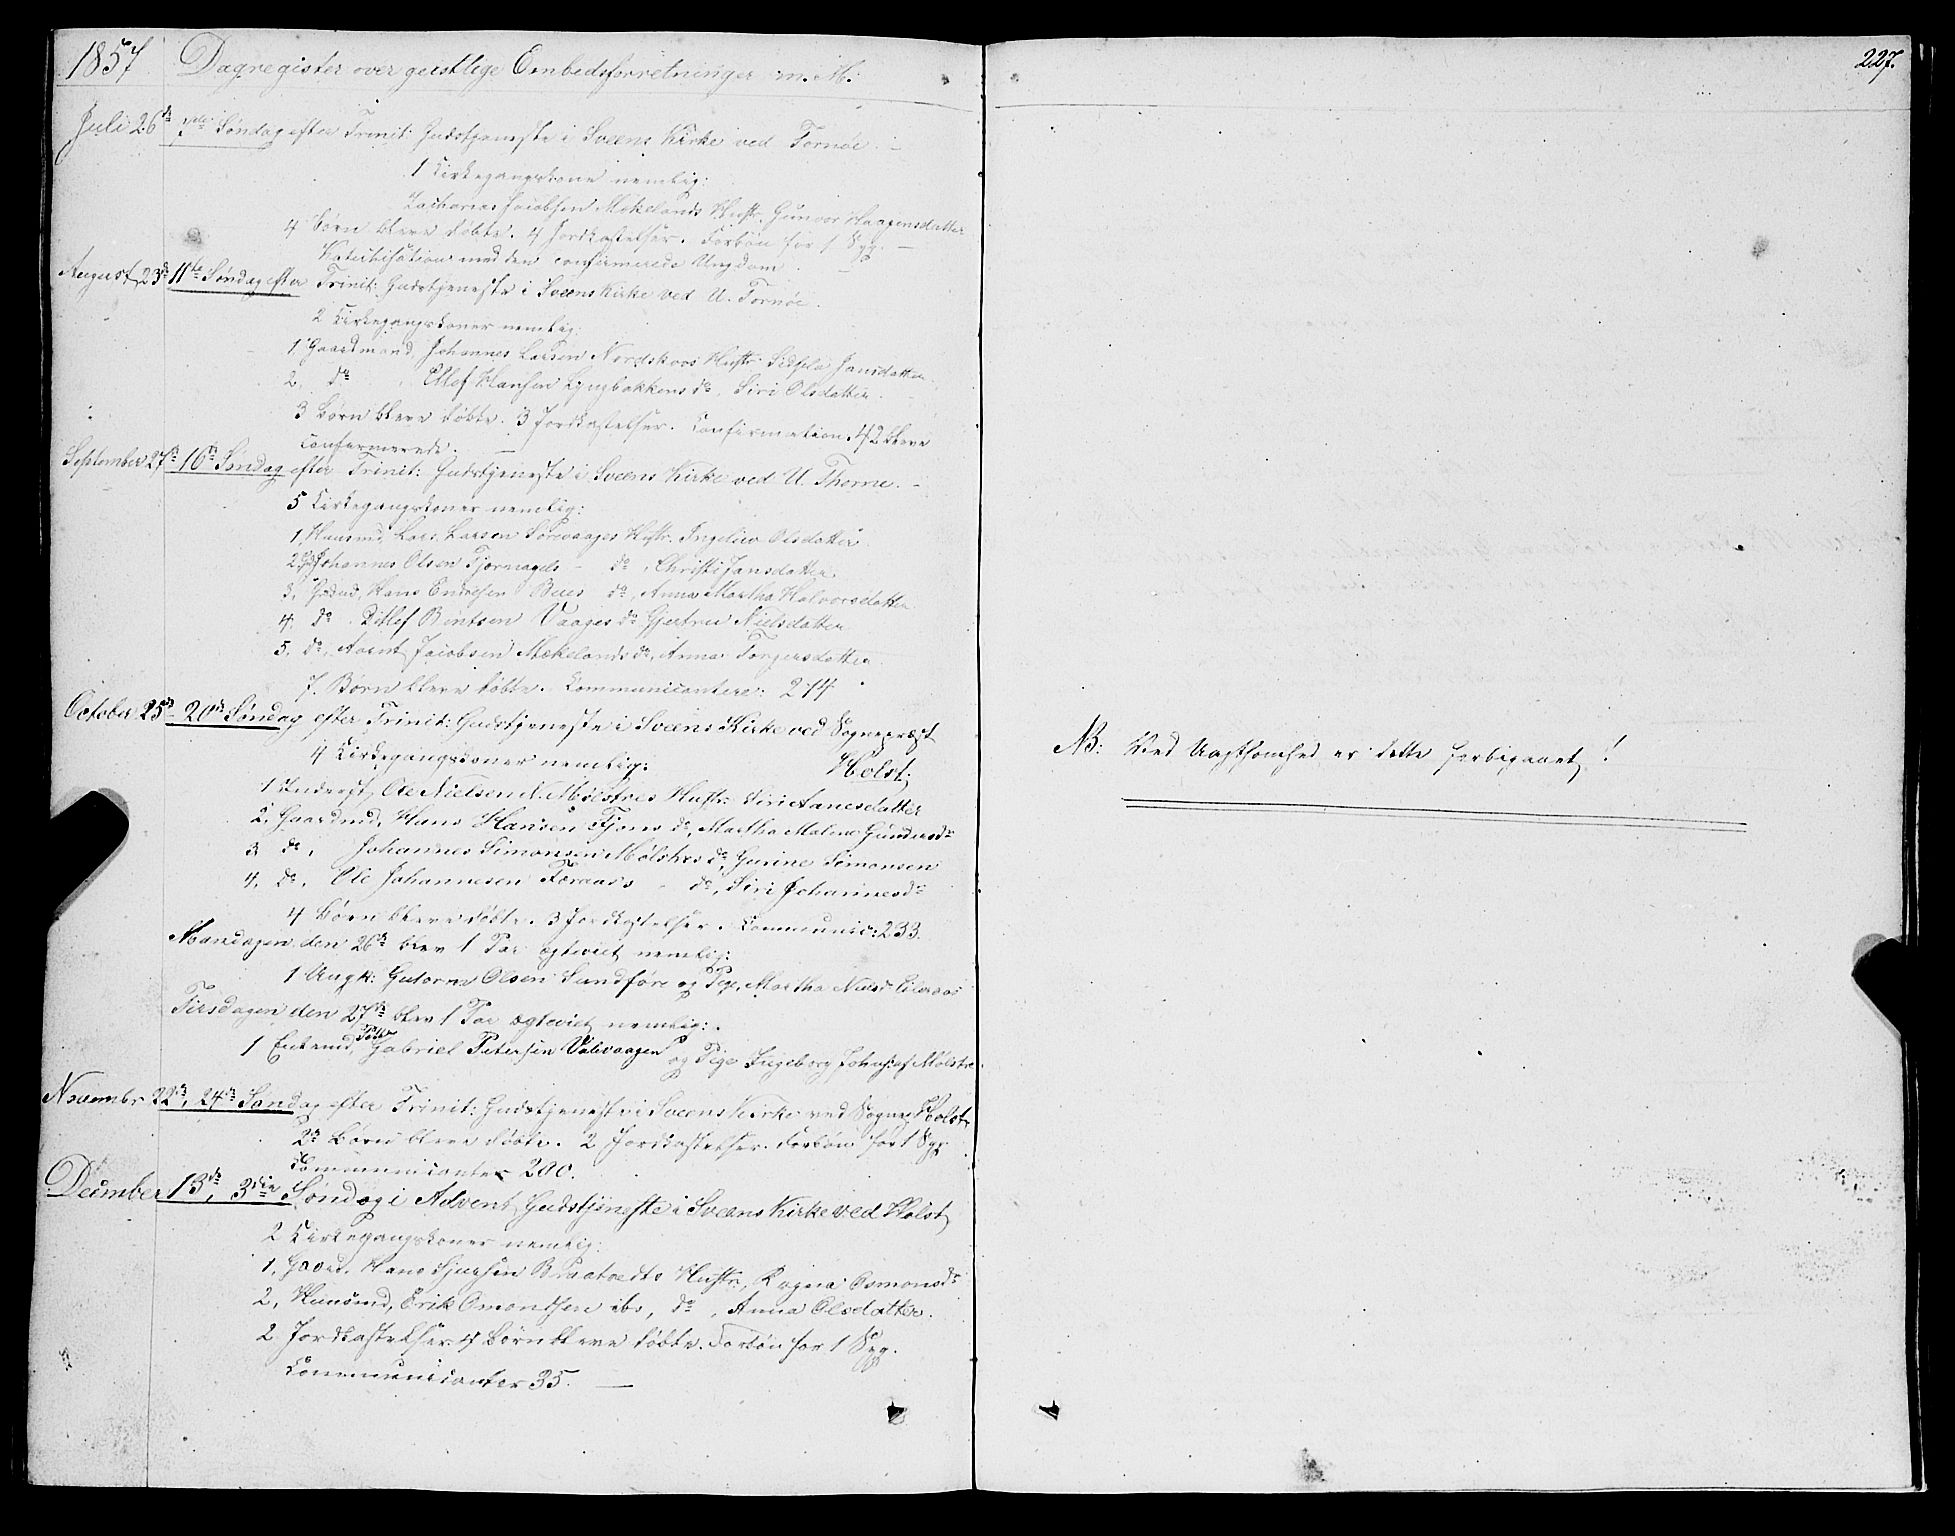 1857 Dagregister over geistlige Embedsforretninger m. M.
227.
Juli 26de 7de Søndag efter Trinit: Gudstjeneste i Sveens Kirke ved Tornøe. –
1 Kirkegangskone nemlig:
Zacharias Jacobsen Mækelands Hustr. Gunvor Haagensdatter
4 Børn bleve døbte. 4 Jordkastelser. Forbøn for 1 Syg. –
Katechisation med den confirmerede Ungdom –
August 23de 11te Søndag efter Trinit: Gudstjeneste i Sveens Kirke ved U. Tornøe.
2 Kirkegangskoner nemlig:
1 Gaardmand, Johannes Larsen Nordskovs Hustr. Jansdatter
2, do Ellef Hansen Lyngbakkens do, Siri Olsdatter.
3 Børn bleve døbte. 3 Jordkastelser. Confirmation. 42 bleve
Confirmerede. –
September 27de 16de Søndag efter Trinit: Gudstjeneste i Sveens Kirke ved U. Thorne. –
5 Kirkegangskoner nemlig:
1, Huusmd, Lars Larsen Hustr. Ingeliev Olsdatter
2, Johannes Olsen Tjernagels – do, Christi Jansdatter
3, Gaardmd, Hans Endresen Bues do, Anna Martha Halvorsdatter
4. do Ditlef Bintsen Vaages do Gjertrue Nielsdatter
5. do, Aarnt Jacobsen Mækelands do, Anna Torgersdatter.
7. Børn bleve døbte. Communicantere: 214
October 25de 20de Søndag efter Trinit: Gudstjeneste i Sveens Kirke ved Sognepræst
Holst.
4 Kirkegangskoner nemlig:
1 Inderst, Ole Nielsen Mølstres Hustr: Siri Aanesdatter
2. Gaardmd, Hans Hansen Fjons do, Martha Malene Gundersdr
3 do, Johannes Simonsen Mølstres do, Gurine Simonsen
4. do, Ole Johannesen Færaas's – do, Siri Johannesdr
4 Børn bleve døbte. 3 Jordkastelser. Communic: 233.
Mandagen den 26de blev 1 Par egteviet nemlig:
1 Ungk: Gutorm Olsen Sandføre og Pige, Martha Nielsdr
Tirsdagen den 27de blev 1 Par egteviet nemlig:
1 Enkemd, Gabriel Petersen Valevaagen og Pige Ingeborg Johns: af Mølstre.
Novembr 22de, 24de Søndag efter Trinit: Gudstjeneste i Sveens Kirke ved Sognep Holst,
2de Børn bleve døbte. 2 Jordkastelser. Forbøn for 1 Syg
Communicanter 200.
December 13de, 3die Søndag i Advent, Gudstjeneste i Sveens Kirke ved Holst,
2 Kirkegangskoner nemlig:
1, Gaard. Hans Sjursen Braatvedts Hustr, Ragna Osmonsdr
2, Huusmd, Erik Omondsen ibs, do, Anna Olsdatter.
2 Jordkastelser. 4 Børn bleve døbte. Forbøn for 1 Syg.
Communicanter 35. –
NB: Ved Uagtsomhed er dette forbigaaet!